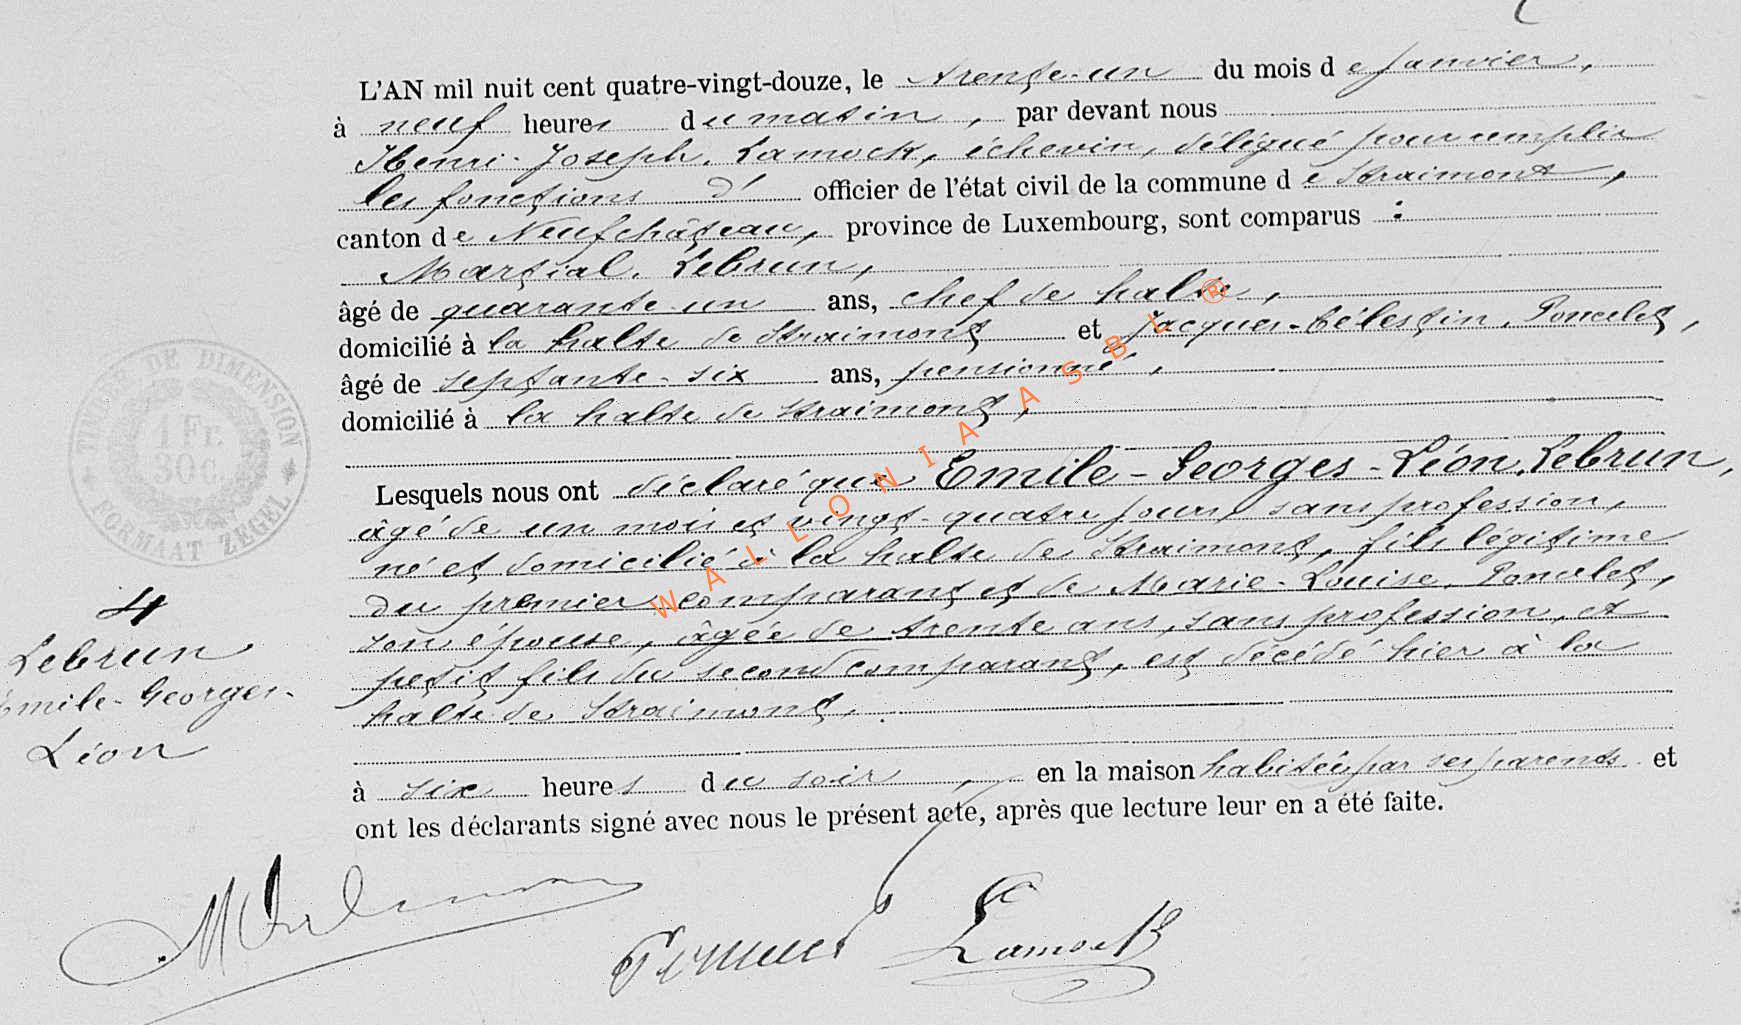 L'AN mil huit cent quatre-vingt-douze, le trente-un du mois de janvier,
à neuf heures du matin, par devant nous
Henri-Joseph. Lamock, échevin, délégué pour remplir
les fonctions d' officier de l'état civil de la commune de Straimont,
canton de Neufchâteau, province de Luxembourg, sont comparus :
Martial. Lebrun,
âgé de quarante-un ans, chef de halte,
domicilié à la halte de Straimont et Jacques-Célestin. Poncelet,
âgé de septante-six ans, pensionné,
domicilié à la halte de Straimont,
Lesquels nous ont déclaré que Emile-Georges-Léon. Lebrun,
âgé de un mois et vingt-quatre jours, sans profession,
né et domicilié à la halte de Straimont, fils légitime
du premier comparant et de Marie-Louise. Poncelet,
son épouse, âgée de trente ans, sans profession, et
petit fils du second comparant, est décédé hier à la
halte de Straimont,
à six heures du soir, en la maison habitée par ses parents et
ont les déclarants signé avec nous le présent acte, après que lecture leur en a été faite.
4
Lebrun
Emile-Georges-
Léon
TIMBRE DE DIMENSION
1 Fr.
30 c.
FORMAAT ZEGEL
WALLONIA ASBL ®
MLebrun
Poncelet
Lamock